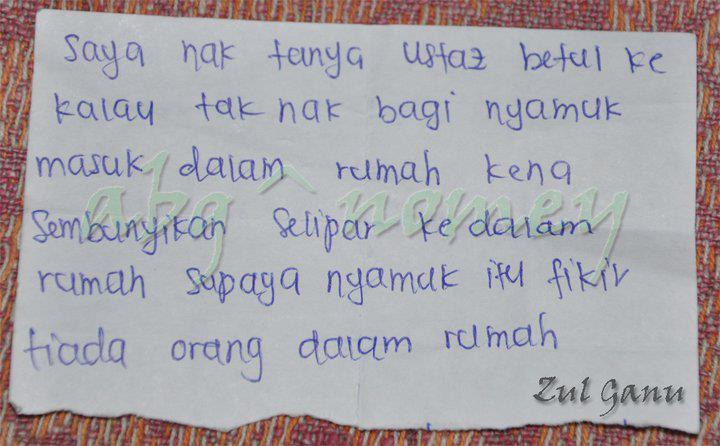 Saya nak tanya ustaz betul ke
kalau tak nak bagi nyamuk
masuk dalam rumah kena
abg^namey
Sembunyikan Selipar ke dalam
rumah supaya nyamuk itu fikir
tiada orang dalam rumah
Zul Ganu